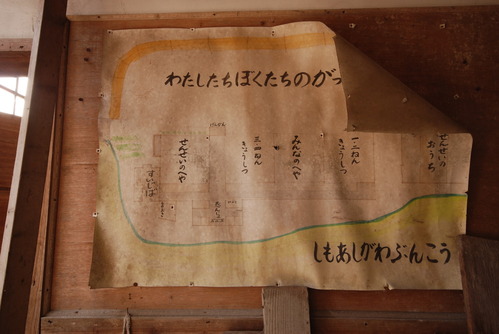 わたしたちぼくたちのがっ
げんかん
せんせいのへや
三・四ねん
きょうしつ
みんなのへや
一・二ねん
きょうしつ
せんせいの
おうち
すいじば
しもあしがわぶんこう